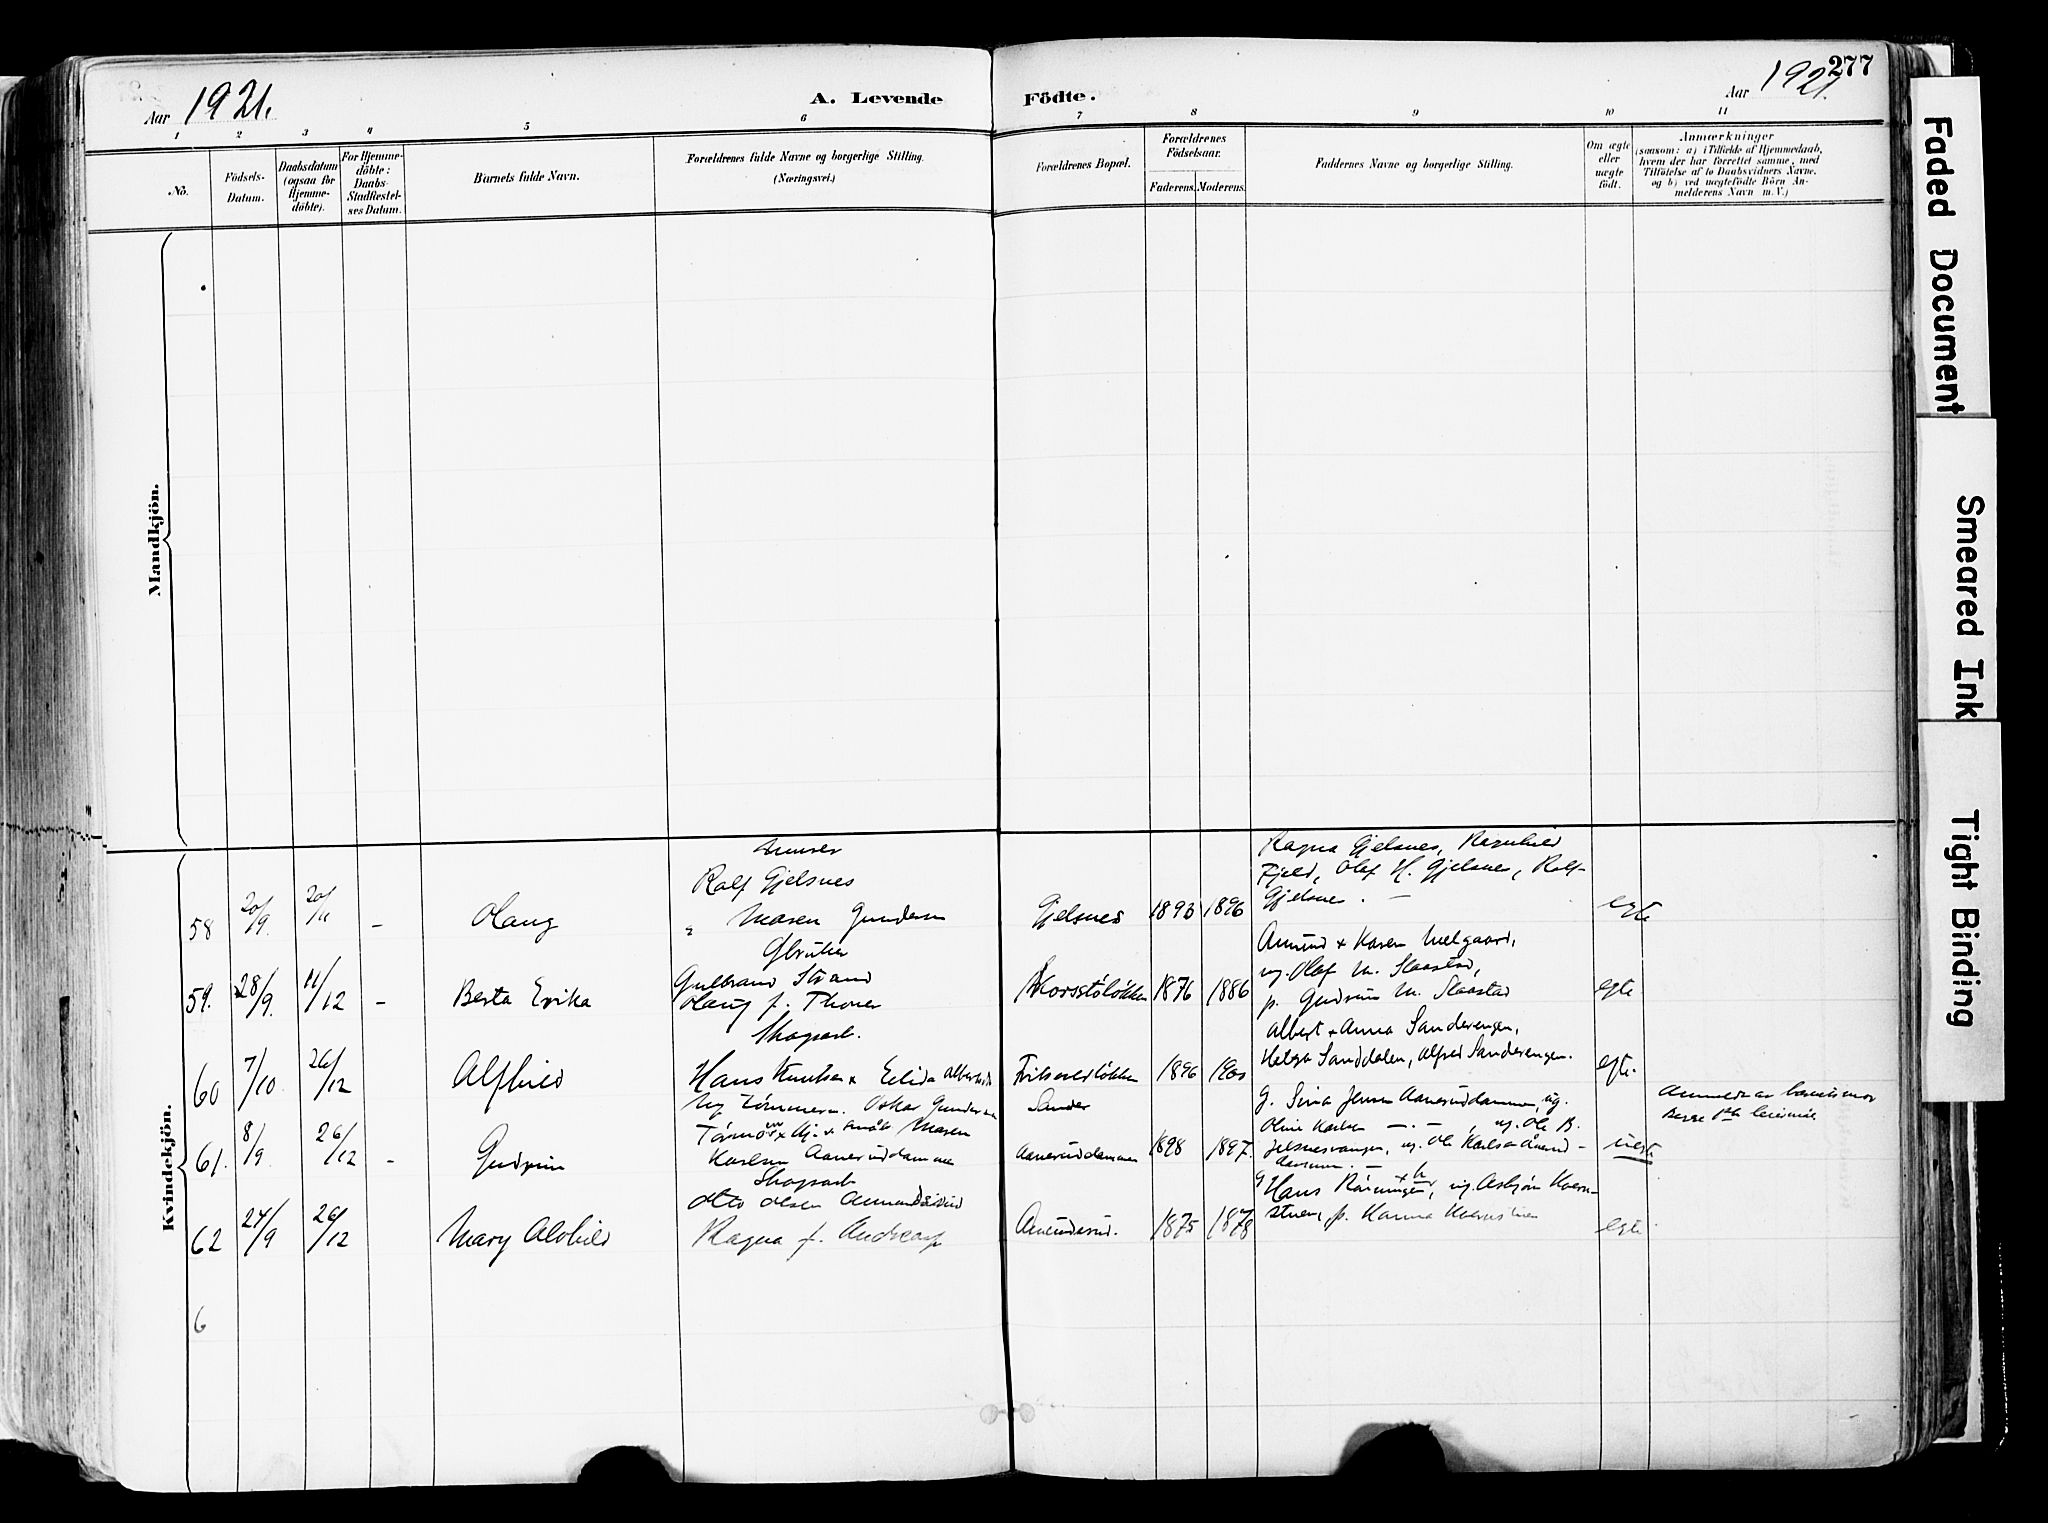 277
Aar 1921.
A. Levende Födte.
Aar 1921.
1 2 3 4 5 6 7 8 9 10 11
No.
Födsels-
Datum.
Daabsdatum
(ogsaa for
Hjemme-
döbte).
For Hjemme-
döbte:
Daabs-
Stadfæstel-
ses Datum.
Barnets fulde Navn.
Forældrenes fulde Navne og borgerlige Stilling.
(Næringsvei.)
Forældrenes Bopæl.
Forældrenes
Födselsaar.
Faderens. Moderens.
Faddernes Navne og borgerlige Stilling.
Om ægte
eller
uægte
født.
Anmærkninger
(saasom: a) i Tilfælde af Hjemmedaab,
hvem der har forrettet samme, med
Tilföielse af to Daabsvidners Navne,
og b) ved uægtefödte Börn An-
melderens Navn m. V.)
Mandkjön.
Kvindekjön.
58
20/9.
20/11
-
Olaug
Rolf Gjelsnes
Maren Gundersen
Gjelsnes
1893
1896
Ragna Gjelsnes, Ragnhild
Fjeld, Olaf H. Gjelsnes, Rolf
Gjelsnes. -
egte
59.
28/9.
11/12
-
Berta Erika
Gbruker
Gulbrand Strand
Olaug f. Thoner
1876
1886
Amund + Karen Melgaard,
ug. Olaf M. Slaastad,
p. Gudrun M. Slaastad
egte
60
7/10.
26/12
Alfhild
Skogsarb.
Hans Knutsen + Elida
1896
Albert + Anna Sanderengen,
Helga Sanddalen, Alfred Sanderengen.
egte.
61.
8/9
26/12
-
Gudrun
Ug. Tömmerm. Oskar Gundersen
Maren
Karlsen Aaneruddammen
Aaneruddammen
1898
1897.
g. Sina Jensen Aaneruddammen, ug.
ug. Ole B.
uegte
Anmeldt av barnets mor
62
24/9
26/12
Mary Alvhild
Skogsarb
Otto Olsen
Ragna f.
Amundsrud.
1875
1878
Hans Rönningen, ug. Asbjørn Kvern-
stuen, p. Hanna Kvernstuen
egte
6
Faded Document
Smeared Ink
Tight Binding